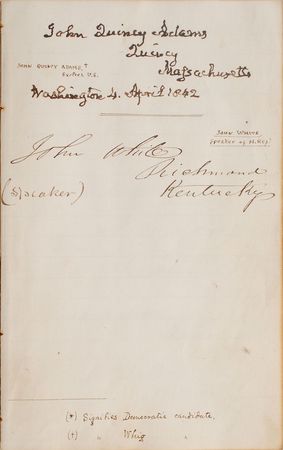 John Quincy Adams
Quincy
Massachusetts
JOHN QUINCY ADAMS †
Washington 4. April 1842
JOHN WHITE
Speaker of H. Rep.
John White
Richmond
(Speaker)
Kentucky
(*) Signifies Democratic candidate.
(†) " Whig